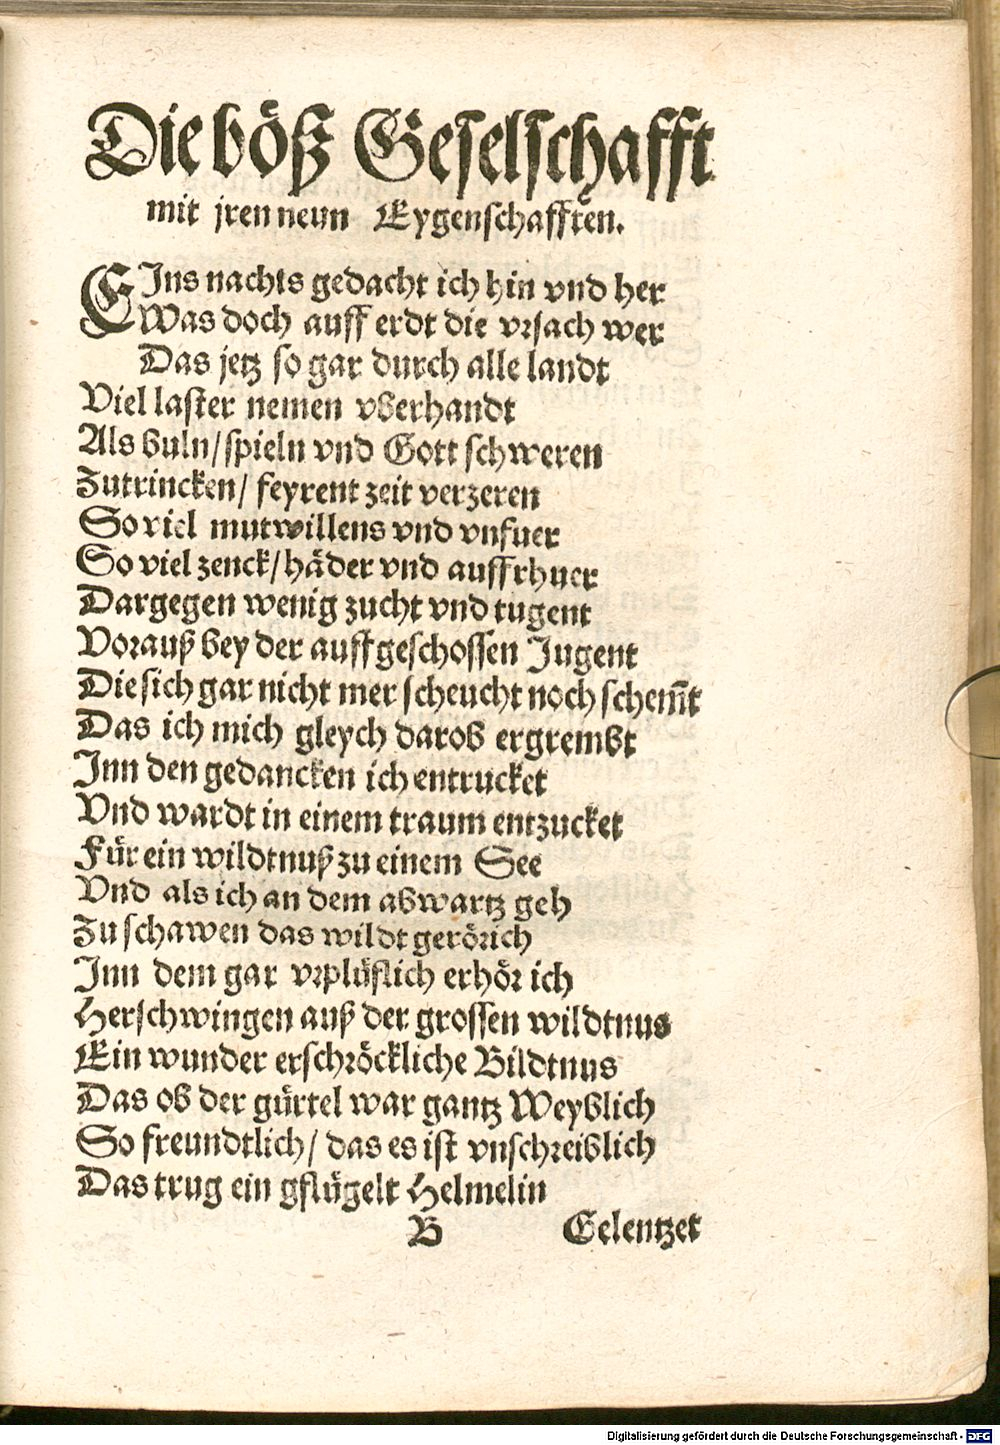 Die böß Geselschafft
mit jren neun Eygenschafften.
EJns nachts gedacht ich hin vnd her
Was doch auff erdt die vrsach wer
Das jetz so gar durch alle landt
Viel laster nemen vberhandt
Als buln/spieln vnd Gott schweren
Zutrincken/ feyrent zeit verzeren
So viel mutwillens vnd vnfuer
So viel zenck/häder vnd auffrhuer
Dargegen wenig zucht vnd tugent
Vorauß bey der auffgeschossen Jugent
Die sich gar nicht mer scheucht noch schem̃t
Das ich mich gleych darob ergrembt
Inn den gedancken ich entrucket
Vnd wardt in einem traum entzucket
Für ein wildtnuß zu einem See
Vnd als ich an dem abwartz geh
Zu schawen das wildt gerörich
Inn dem gar vrplüflich erhör ich
Herschwingen auß der grossen wildtnus
Ein wunder erschröckliche Bildtnus
Das ob der gürtel war gantz Weyblich
So freundtlich/ das es ist vnschreiblich
Das trug ein gflügelt Helmelin
B Gelentzet
Digitalisierung gefördert durch die Deutsche Forschungsgemeinschaft - DFG